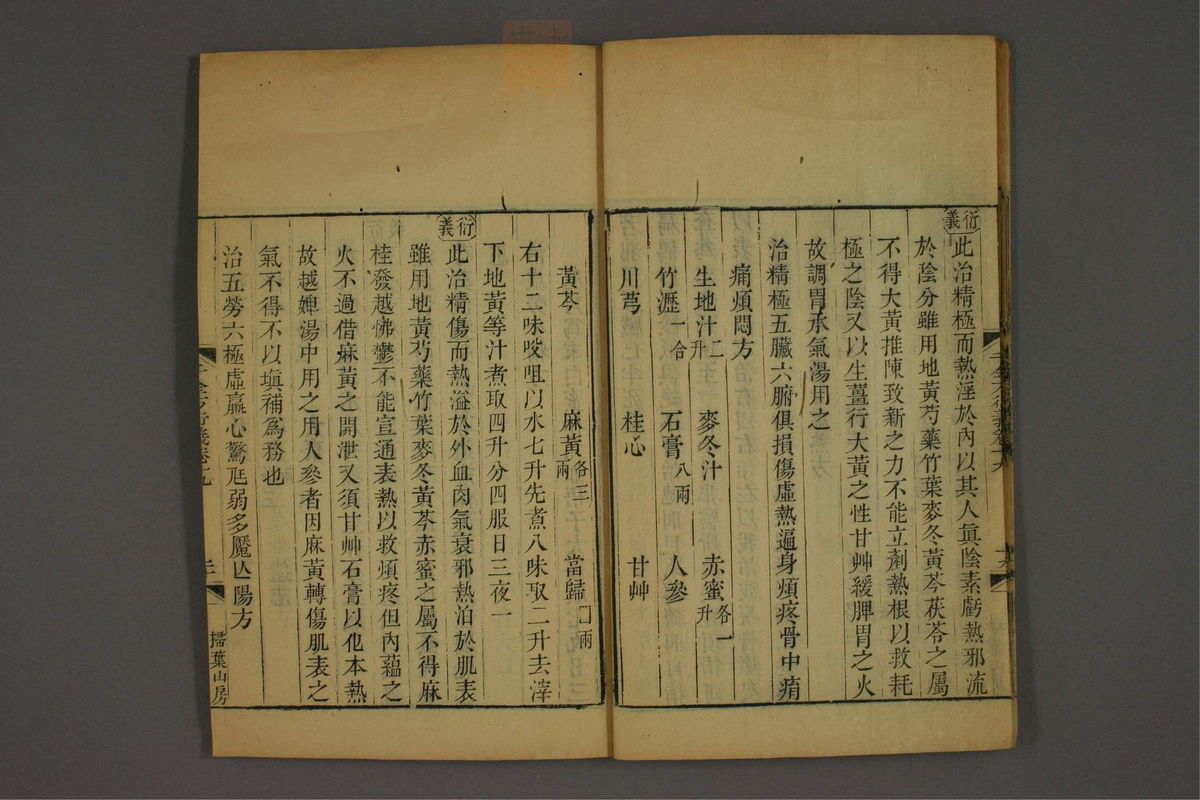 衍義 此治精極而熱淫於內以其人眞陰素虧熱邪流
於陰分雖用地黃芍藥竹葉麥冬黃芩茯苓之屬
不得大黃推陳致新之力不能立剤熱根以救耗
極之陰又以生薑行大黃之性甘艸緩脾胃之火
故調胃承氣湯用之
治精極五臟六腑俱損傷虛熱遍身煩疼骨中痟
痛煩悶方
生地汁二升 麥冬汁 赤蜜各一升
竹瀝一合 石膏八兩 人參
川芎 桂心 甘艸
黃芩 麻黃各三兩 當歸 兩
右十二味㕮咀以水七升先煮八味取二升去滓
下地黃等汁煮取四升分四服日三夜一
衍義 此治精傷而熱溢於外血肉氣衰邪熱泊於肌表
雖用地黃芍藥竹葉麥冬黃芩赤蜜之屬不得麻
桂發越怫鬱不能宣通表熱以救煩疼但內蘊之
火不過借麻黃之開泄又須甘艸石膏以化本熱
故越婢湯中用之用人參者因麻黃轉傷肌表之
氣不得不以塡補爲務也
治五勞六極虛羸心驚尫弱多魘亾陽方
掃葉山房